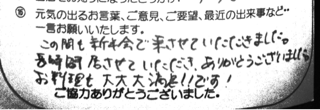 ⑯ 元気の出るお言葉、ご意見、ご要望、最近の出来事など…
一言お願いいたします。
この間も新年会で来させていただきました。
長時間居させていただき、ありがとうございました
お料理も大大大満足!!です!
ご協力ありがとうございました。